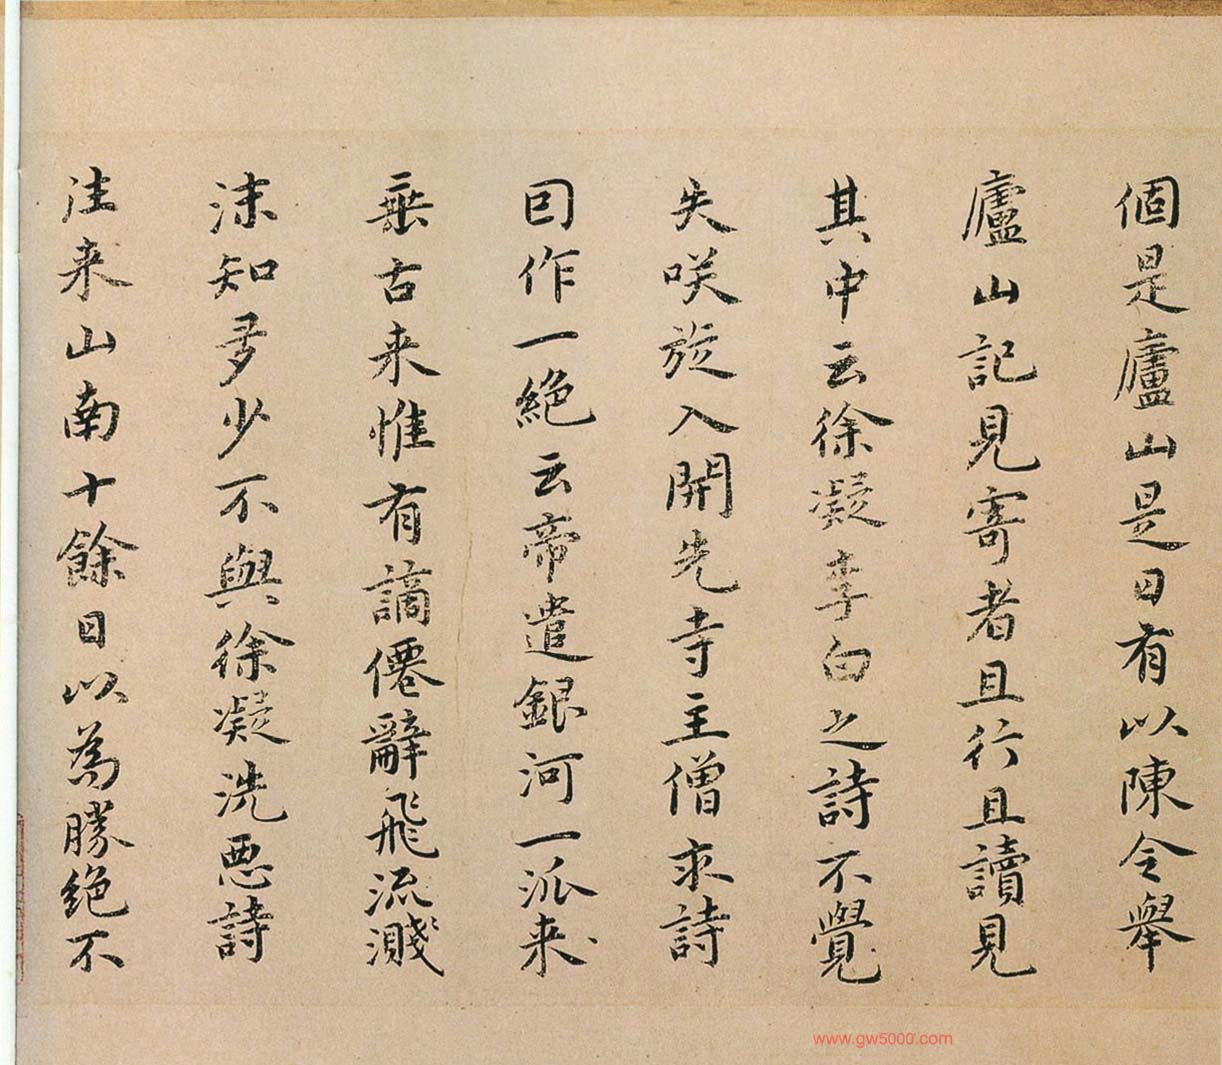 個是廬山是日有以陳令舉
廬山記見寄者且行且讀見
其中云徐凝李白之詩不覺
失咲旋入開先寺主僧求詩
囙作一絶云帝遣銀河一派来
垂古来惟有謫僊辭飛流濺
沫知多少不與徐凝洗悪詩
往来山南十餘日以為勝絶不
www.gw5000.com